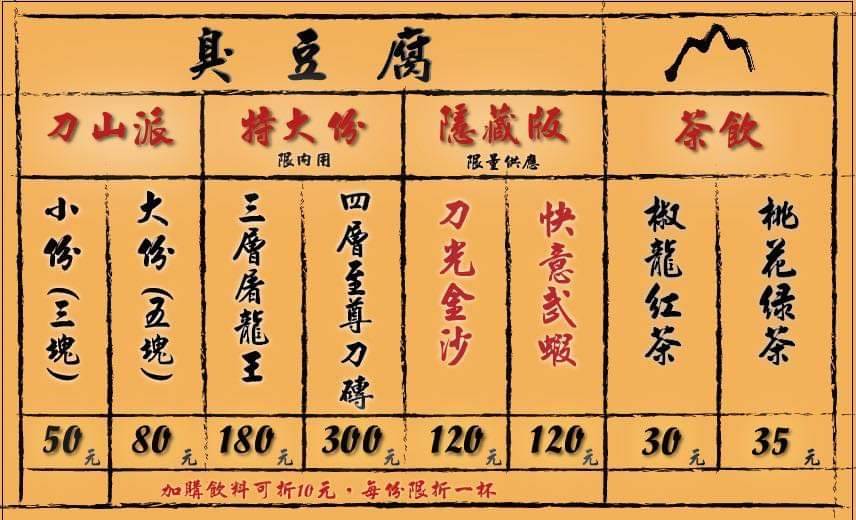 臭豆腐
刀山派
特大份
限內用
隱藏版
限量供應
茶飲
小份(三塊)
大份(五塊)
三層屠龍王
四層至尊刀磚
刀光金沙
快意武蝦
椒龍紅茶
桃花绿茶
50元
80元
180元
300元
120元
120元
30元
35元
加購飲料可折10元，每份限折一杯